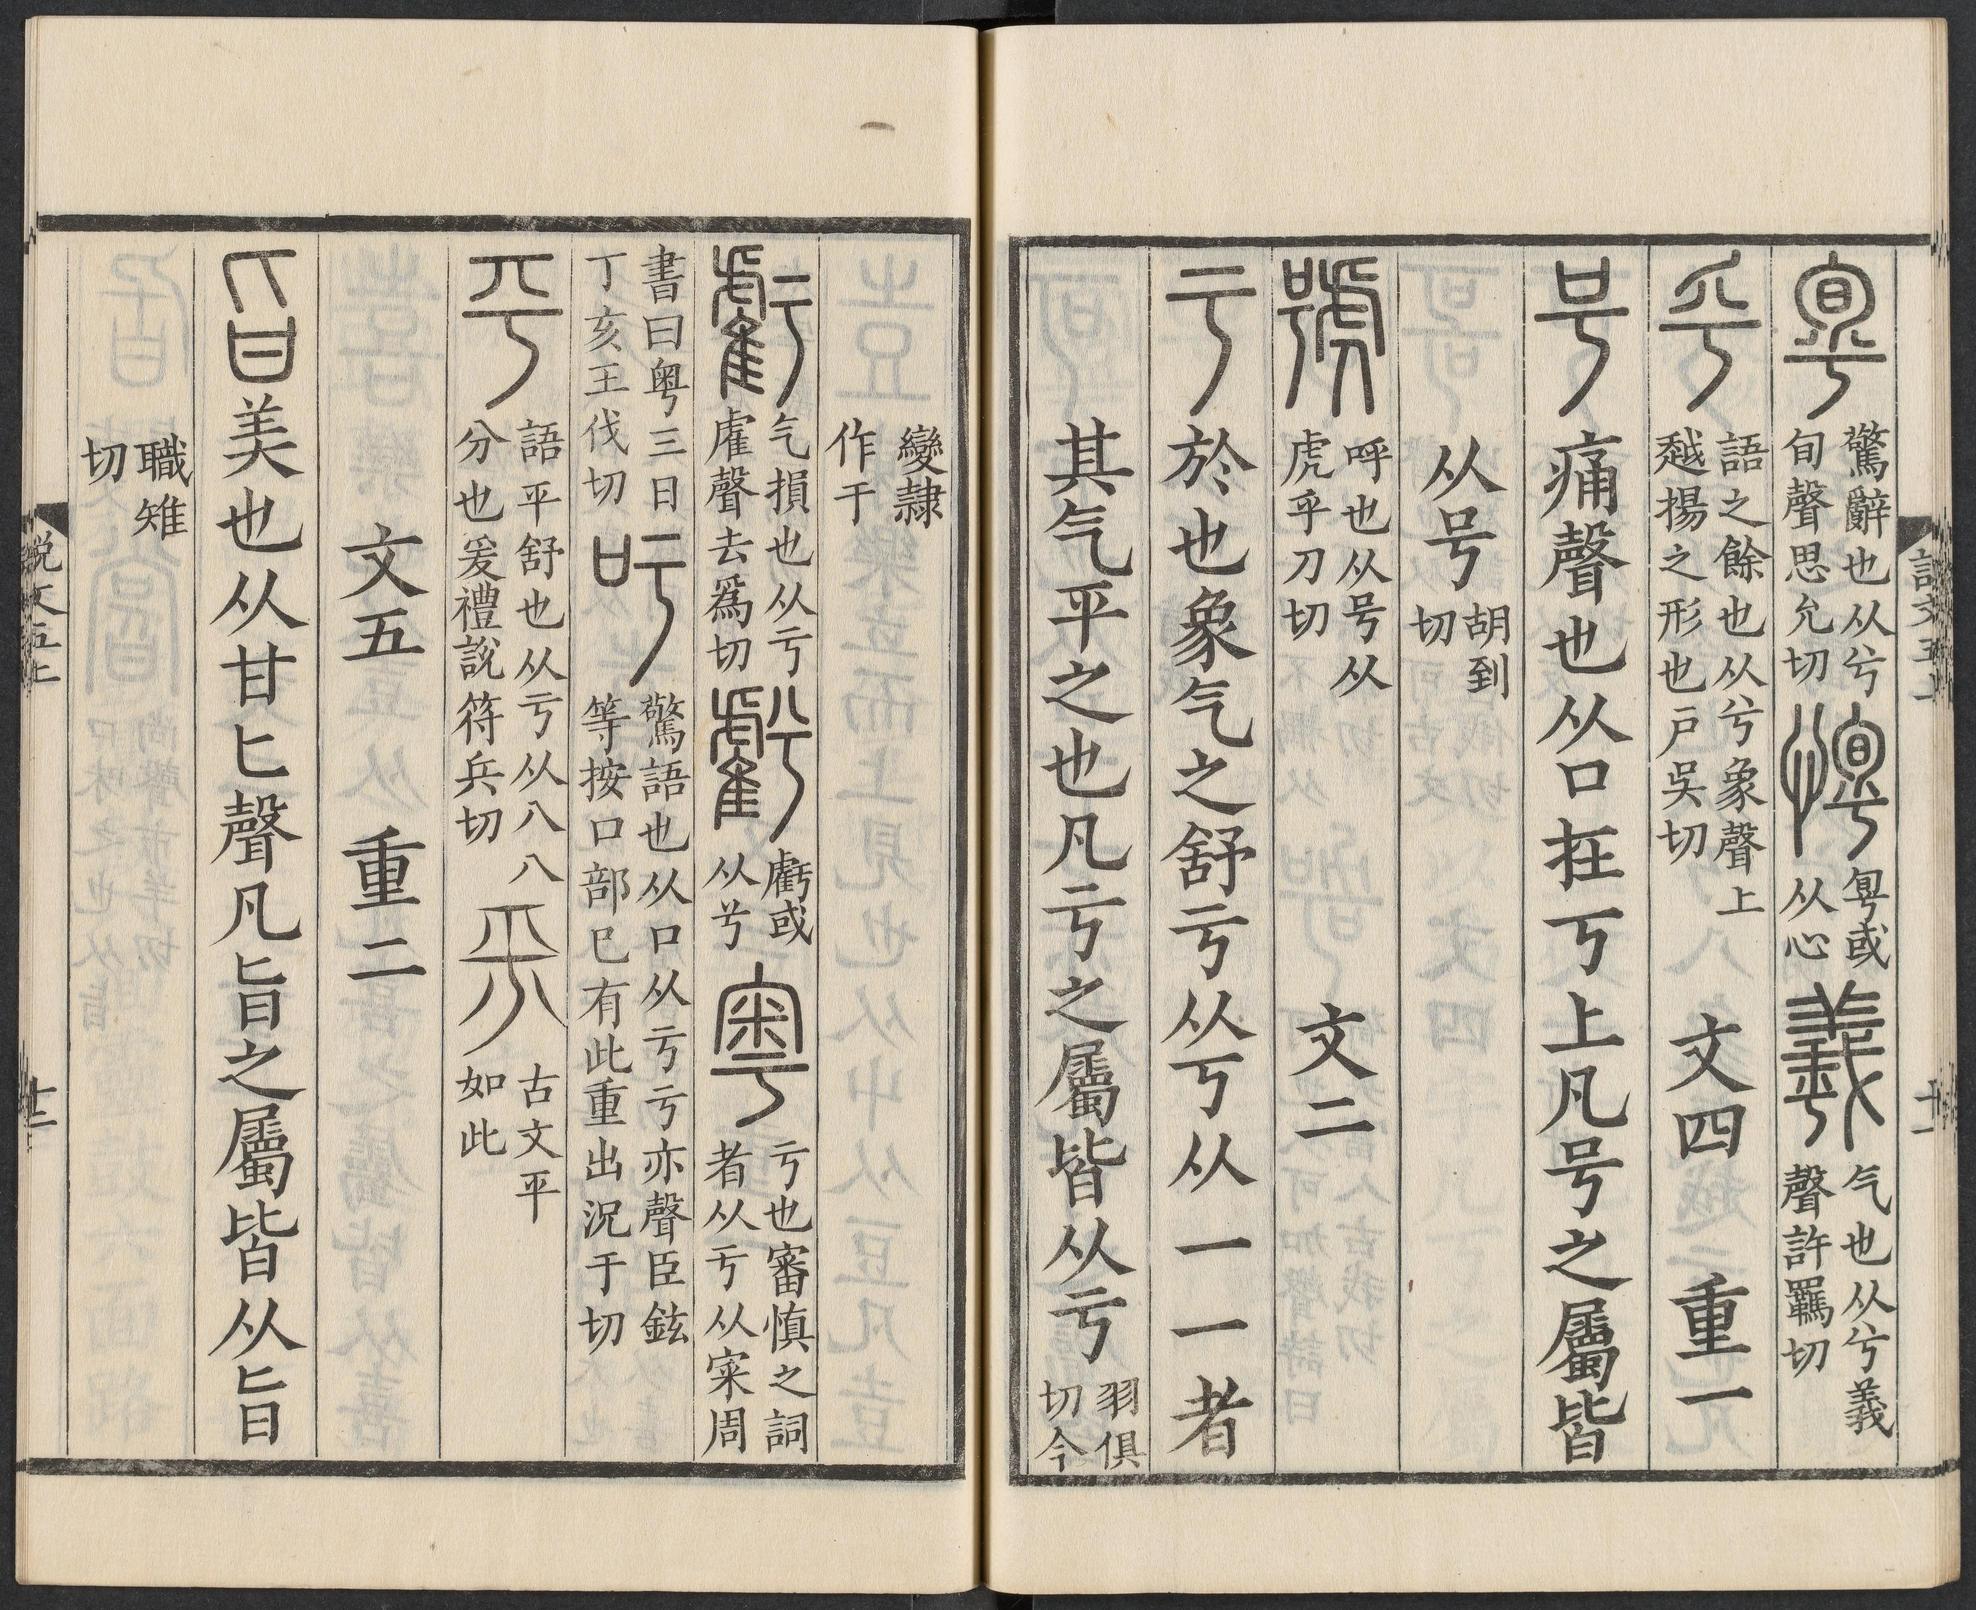 驚辭也从兮
旬聲思允切
粤或
从心
气也从兮義
聲許羈切
語之餘也从兮象聲上
越揚之形也戶吳切
文四 重一
号 痛聲也从口在丂上凡号之屬皆
从号
胡到
切
號
呼也从号从
虎乎刀切
文二
亏 於也象气之舒亏从丂从一一者
其气平之也凡亏之屬皆从亏
羽俱
切今
變隸
作于
虧
气損也从亏
雐聲去爲切
虧或
从兮
粵
亏也審慎之詞
者从亏从宷周
書曰粤三日
丁亥王伐切
吁
驚語也从口从亏亏亦聲臣鉉
等按口部已有此重出況于切
平
語平舒也从亏从八八
分也爰禮說符兵切
古文平
如此
文五 重二
旨 美也从甘匕聲凡旨之屬皆从旨
職雉
切
説文五上
十二